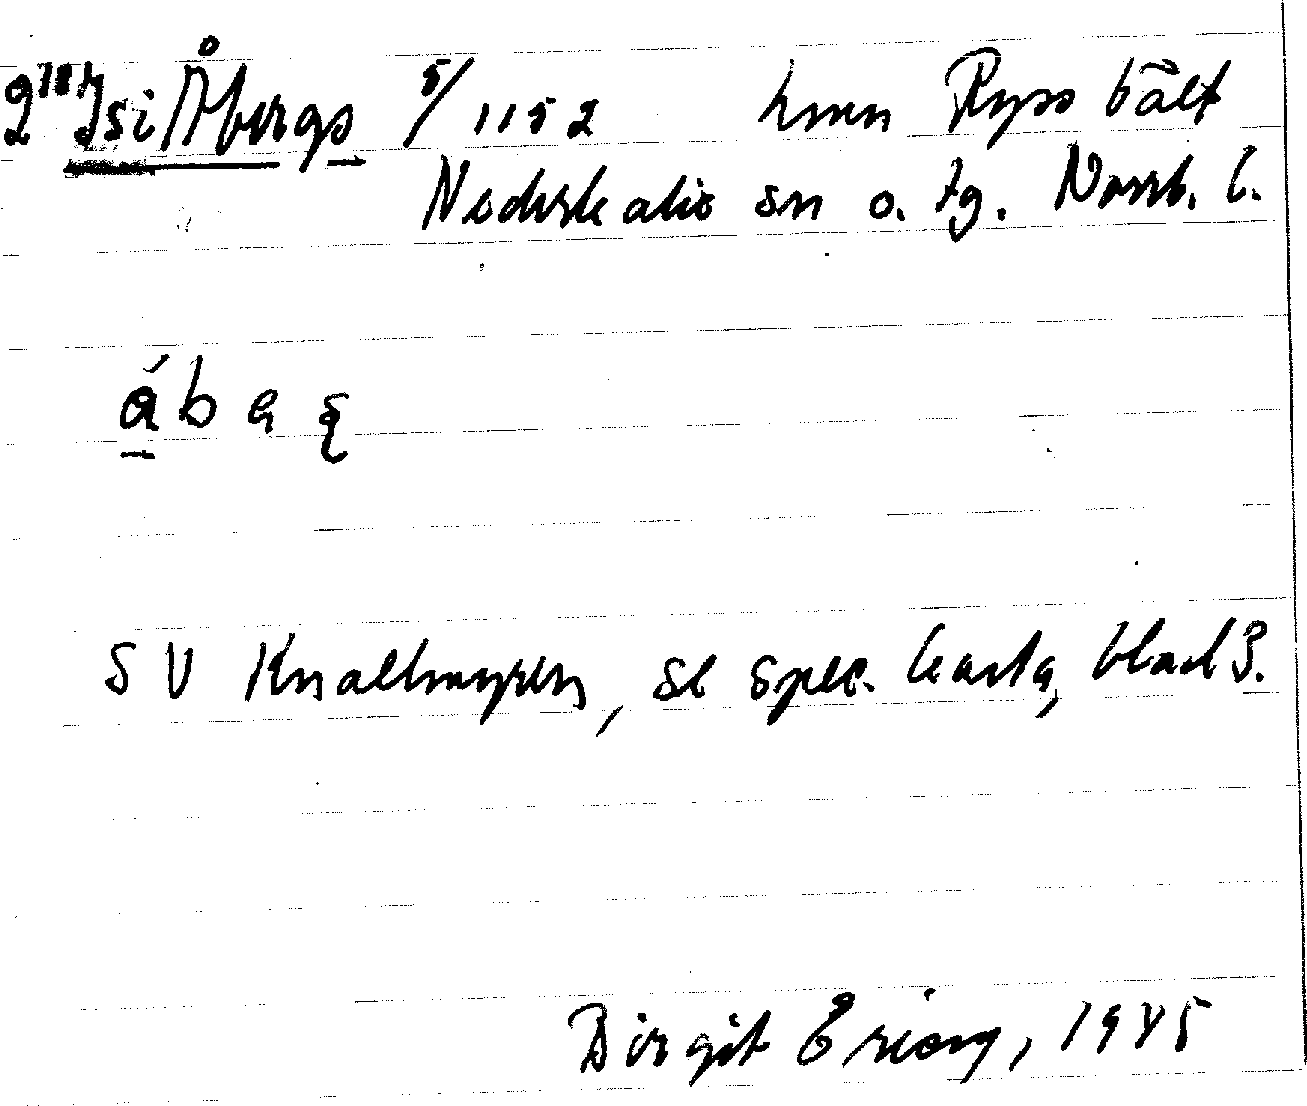 Åbergs 5/1152 hmn Ryssbält
Nederkalix sn o. tg. Norrb. l.
SV Knallmyren, se spec. karta, blad 3.
Birgit Ericy, 1945